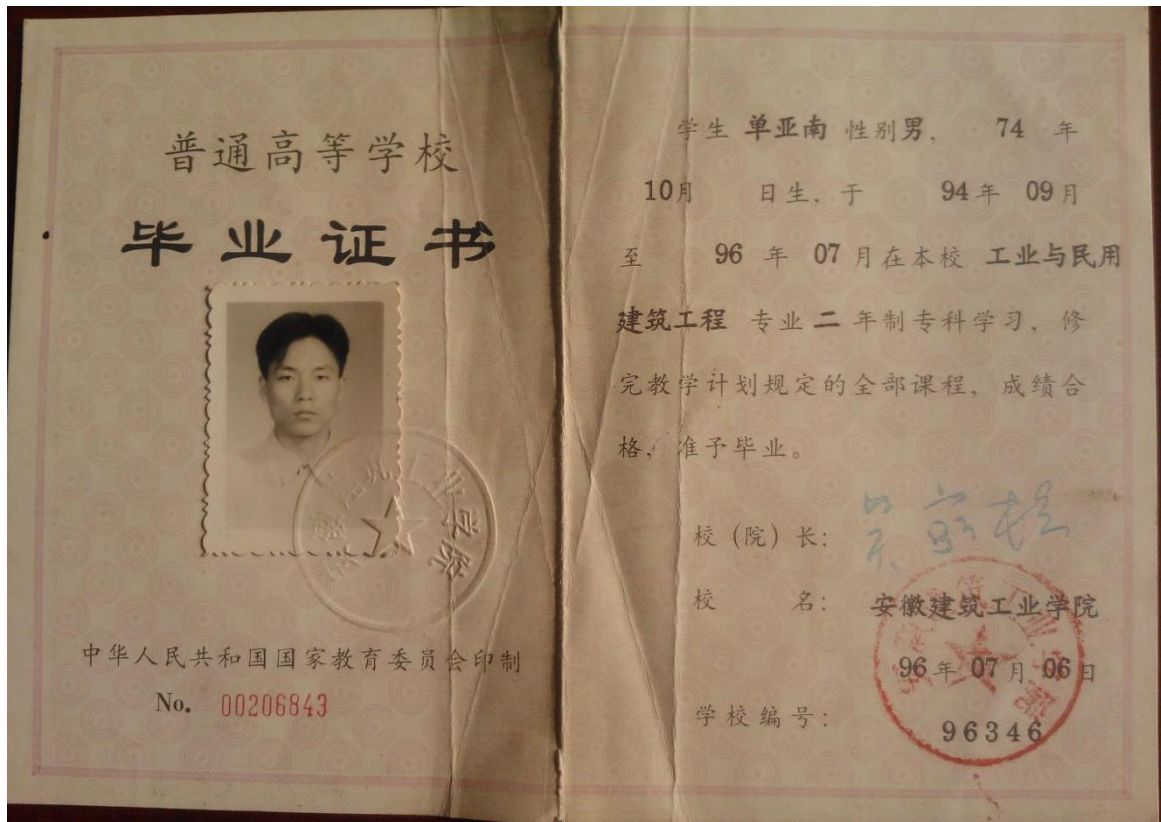 普通高等学校
毕业证书
中华人民共和国国家教育委员会印制
No. 00206843
学生 单亚南 性别男, 74 年
10月 日生, 于 94年 09月
至 96 年 07 月在本校 工业与民用
建筑工程 专业 二 年制专科学习, 修
完教学计划规定的全部课程, 成绩合
格, 准予毕业。
校(院)长:
校 名: 安徽建筑工业学院
96年 07月 06日
学校编号: 96346